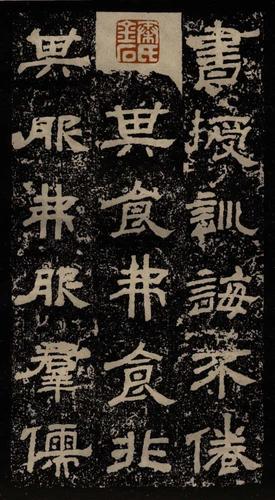 書授訓誨不倦
其食弗食非
其服弗服羣儒